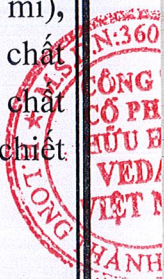 mì),
chất
chất
chiết
M.S.D.N:360
CÔNG
CỔ PH
HỮU H
VEDA
VIỆT N
LONG THÀNH